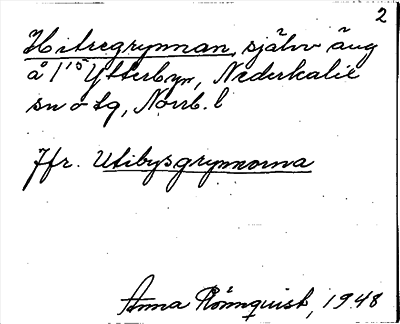 2
Hitregrynnan, självv äng
å 1¹⁵ Ytterbyn, Nederkalix
sn o tg, Norrb. l
Jfr. Utibysgrynnorna
Anna Rönnquist, 1948